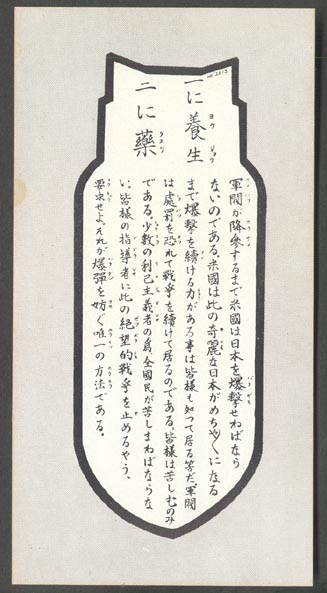 no 2013
一に養生
ヨウジョウ
二に藥
クスリ
軍閥が降參するまで米國は日本を爆撃せねばなら
ないのである。米國は此の奇麗な日本がめちゃ〱になる
まで爆撃を續ける力がある事は皆樣も知つて居る筈だ。軍閥
は處罰を恐れて戰爭を續けて居るのである。皆樣は苦しむのみ
である。少數の利己主義者の爲全國民が苦しまねばならな
い。皆樣の指導者に此の絶望的戰爭を止めるやう、
要求せよ。それが爆彈を妨ぐ唯一の方法である。